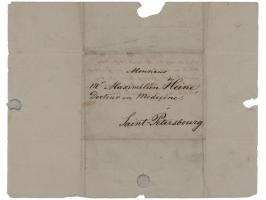 Monsieur
Mr Maximilien Heine
Docteur en Medecine
à
Saint-Petersbourg